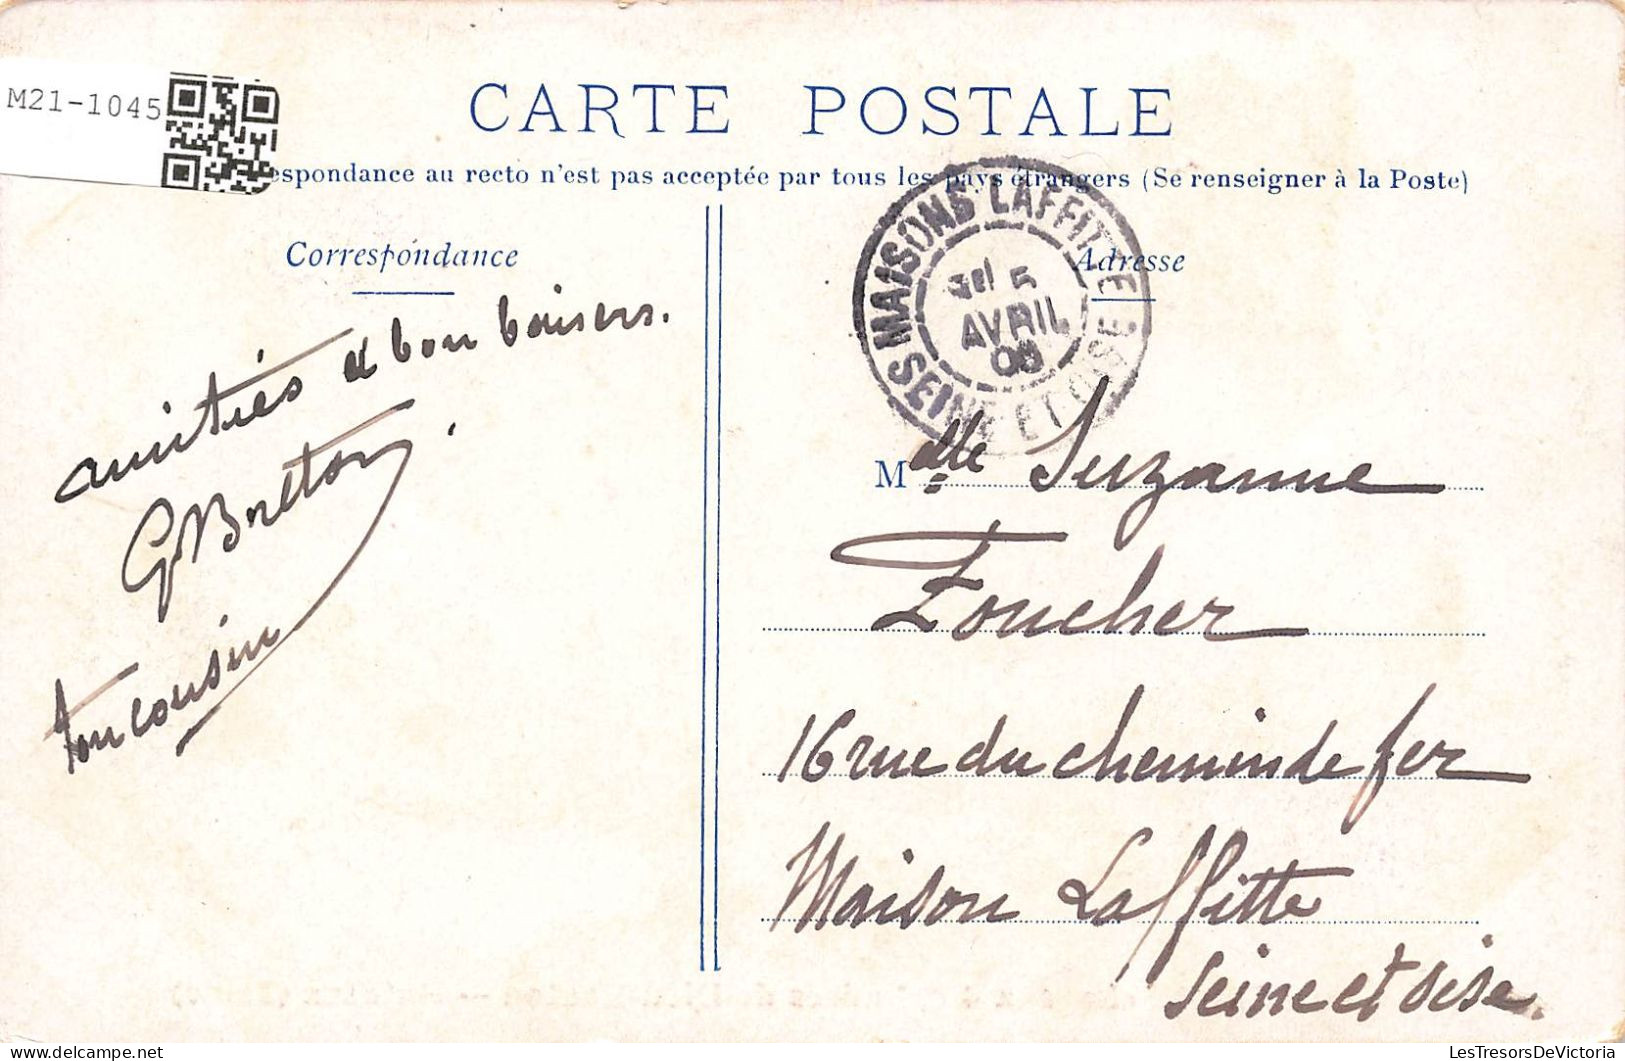 M21-1045
CARTE POSTALE
espondance au recto n'est pas acceptée par tous les pays étrangers (Se renseigner à la Poste)
Correspondance
amitiés & bon baisers.
G Breton.
ton cousin
MAISONS LAFFITTE
5
AVRIL
08
SEINE ET OISE
Adresse
Melle Suzanne
Foucher
16 rue du chemin de fer
Maison Laffitte
Seine et oise.
LesTresorsDeVictoria